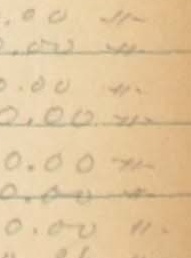 .00 〃
0.00 〃
.00 〃
0.00 〃
0.00 〃
0.00 〃
0.00 〃